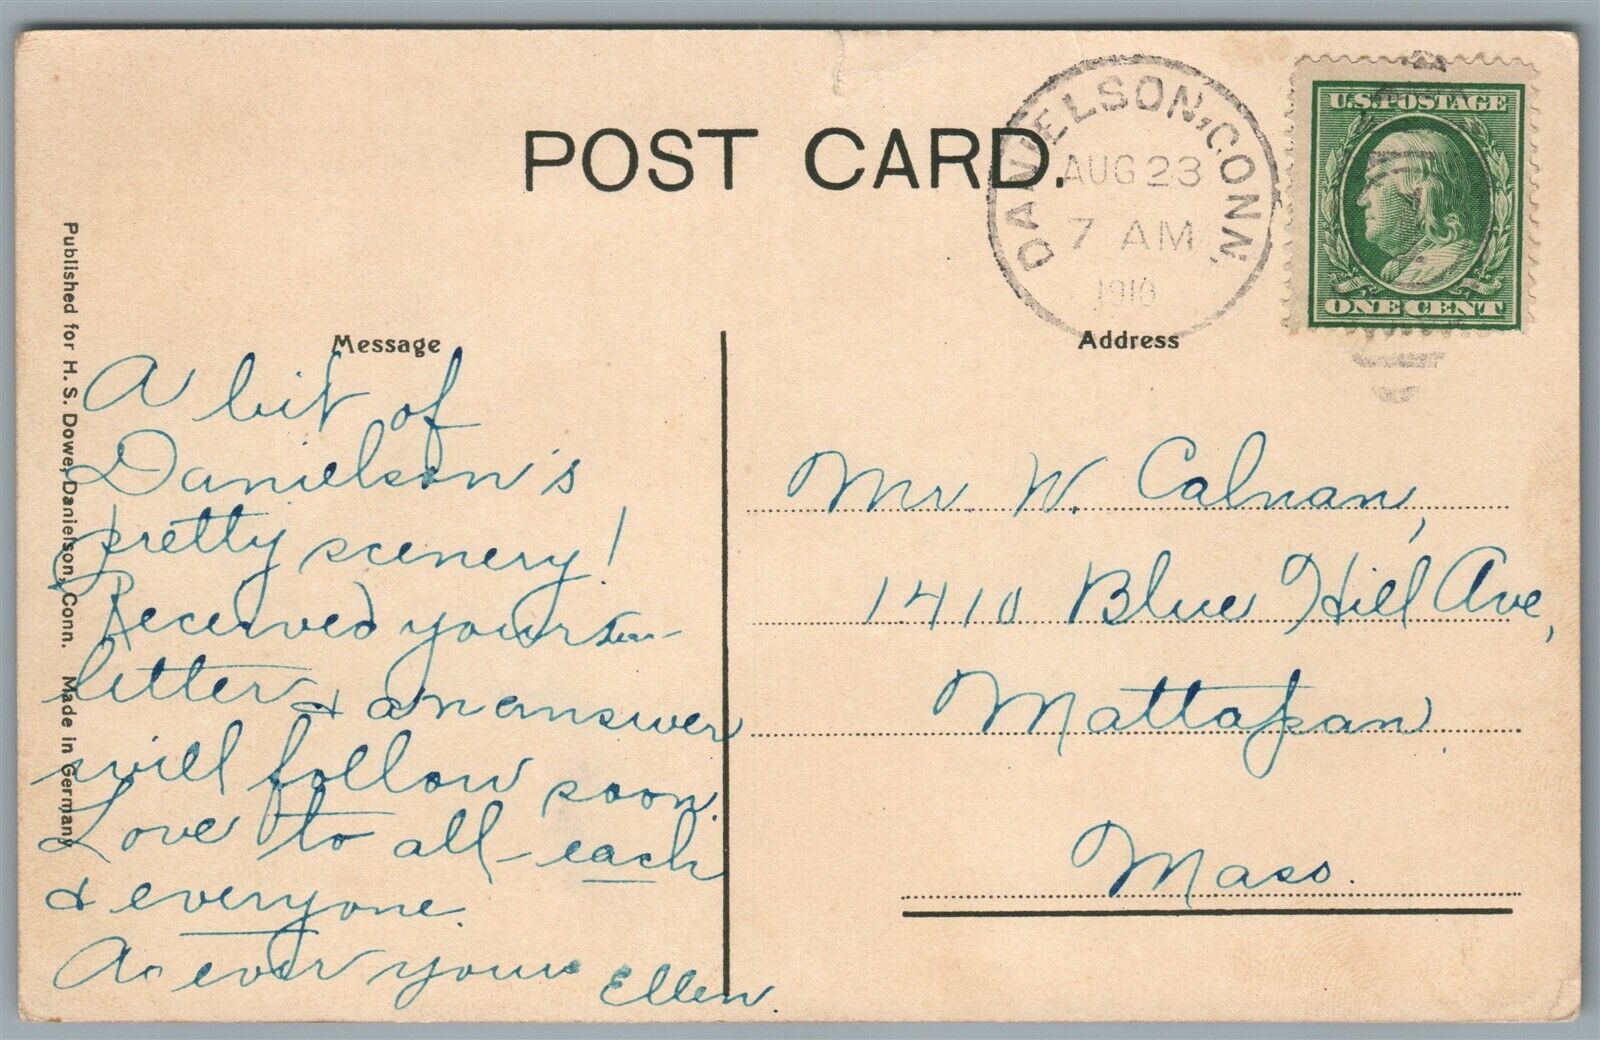 POST CARD.
DANIELSON, CONN.
AUG 23
7 AM
1910
U.S. POSTAGE
ONE CENT
Published for H. S. Dowe, Danielson, Conn. Made in Germany
Message
A bit of
Danielson's
pretty scenery!
Received your
letter & an answer
will follow soon.
Love to all - each
& everyone.
As ever yours Ellen.
Address
Mr. W. Calnan,
1410 Blue Hill Ave,
Mattapan.
Mass.